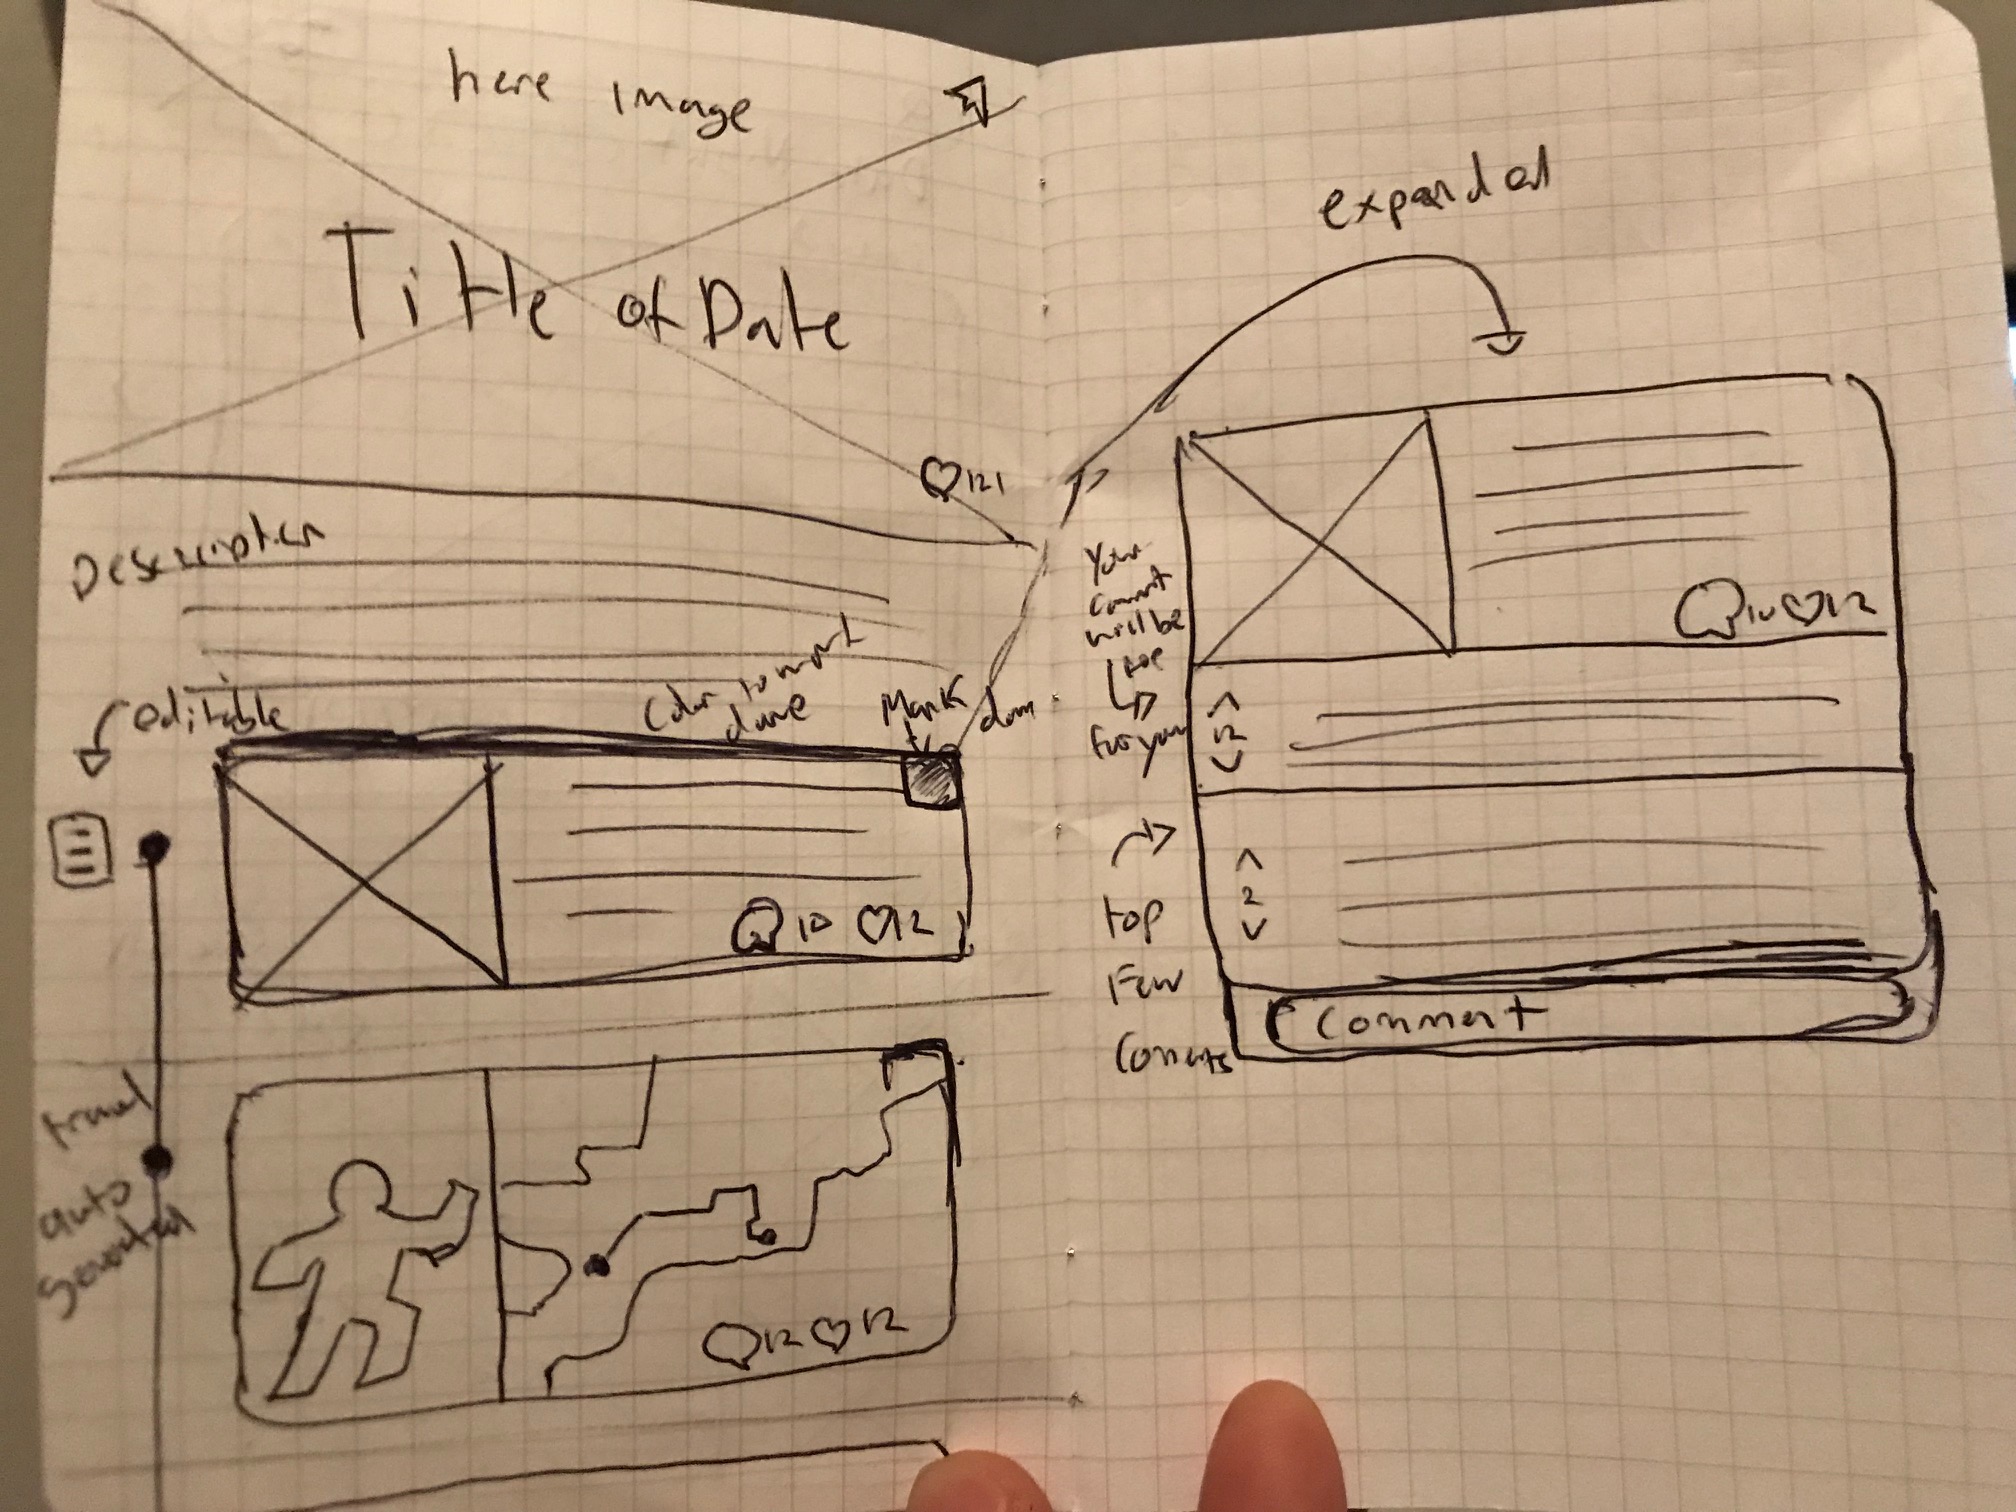 here image
Title of Date
♡121
Description
editable
Color to mark
done
Mark
10 ♡12
travel
auto
12 ♡12
expanded
Your
will be
10 ♡12
for you
^
12
v
^
2
v
top
Few
Comments
Comment